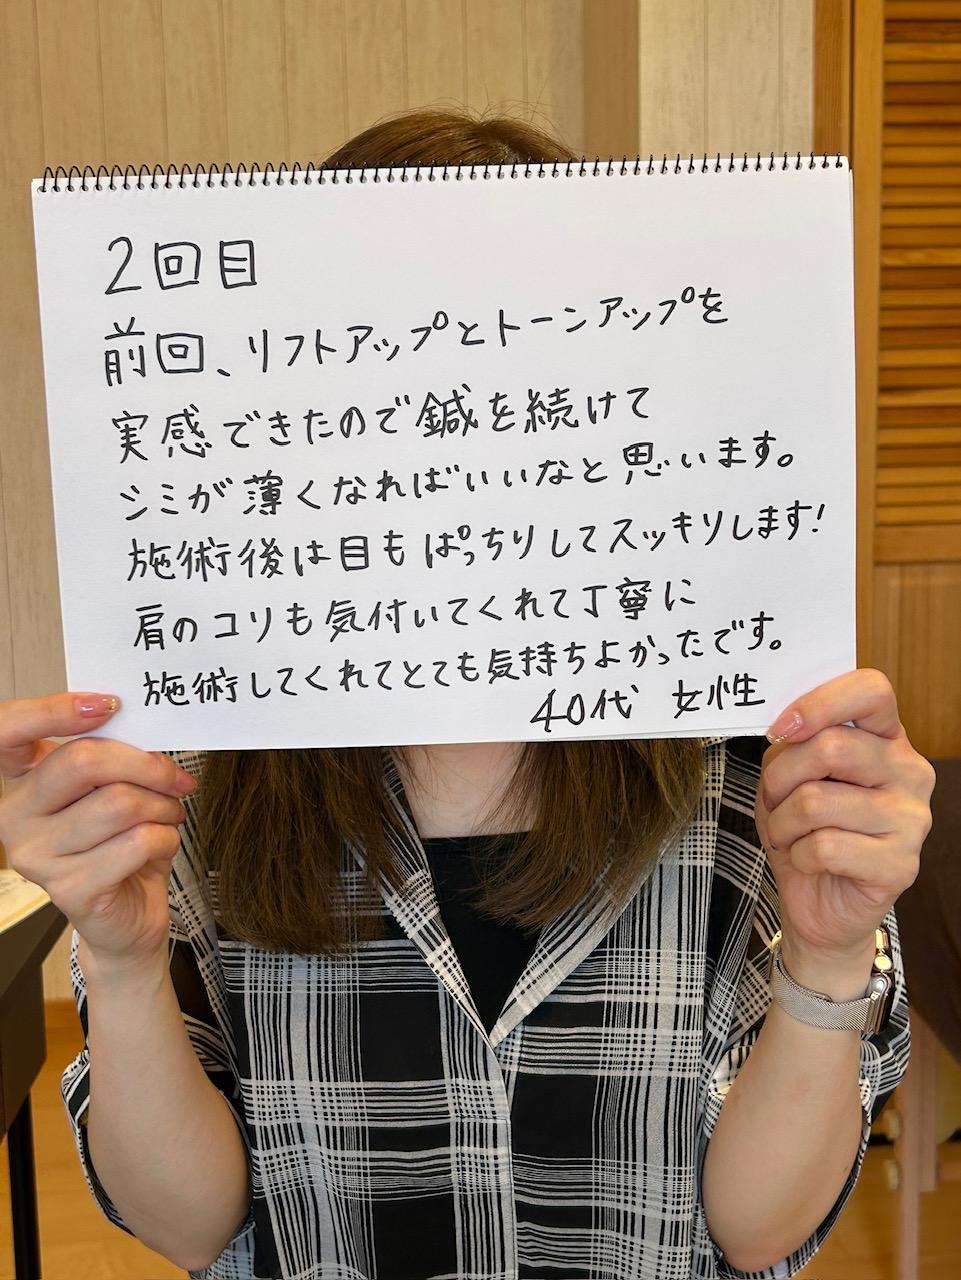 2回目
前回、リフトアップとトーンアップを
実感できたので鍼を続けて
シミが薄くなればいいなと思います。
施術後は目もぱっちりしてスッキリします!
肩のコリも気付いてくれて丁寧に
施術してくれてとても気持ちよかったです。
40代 女性